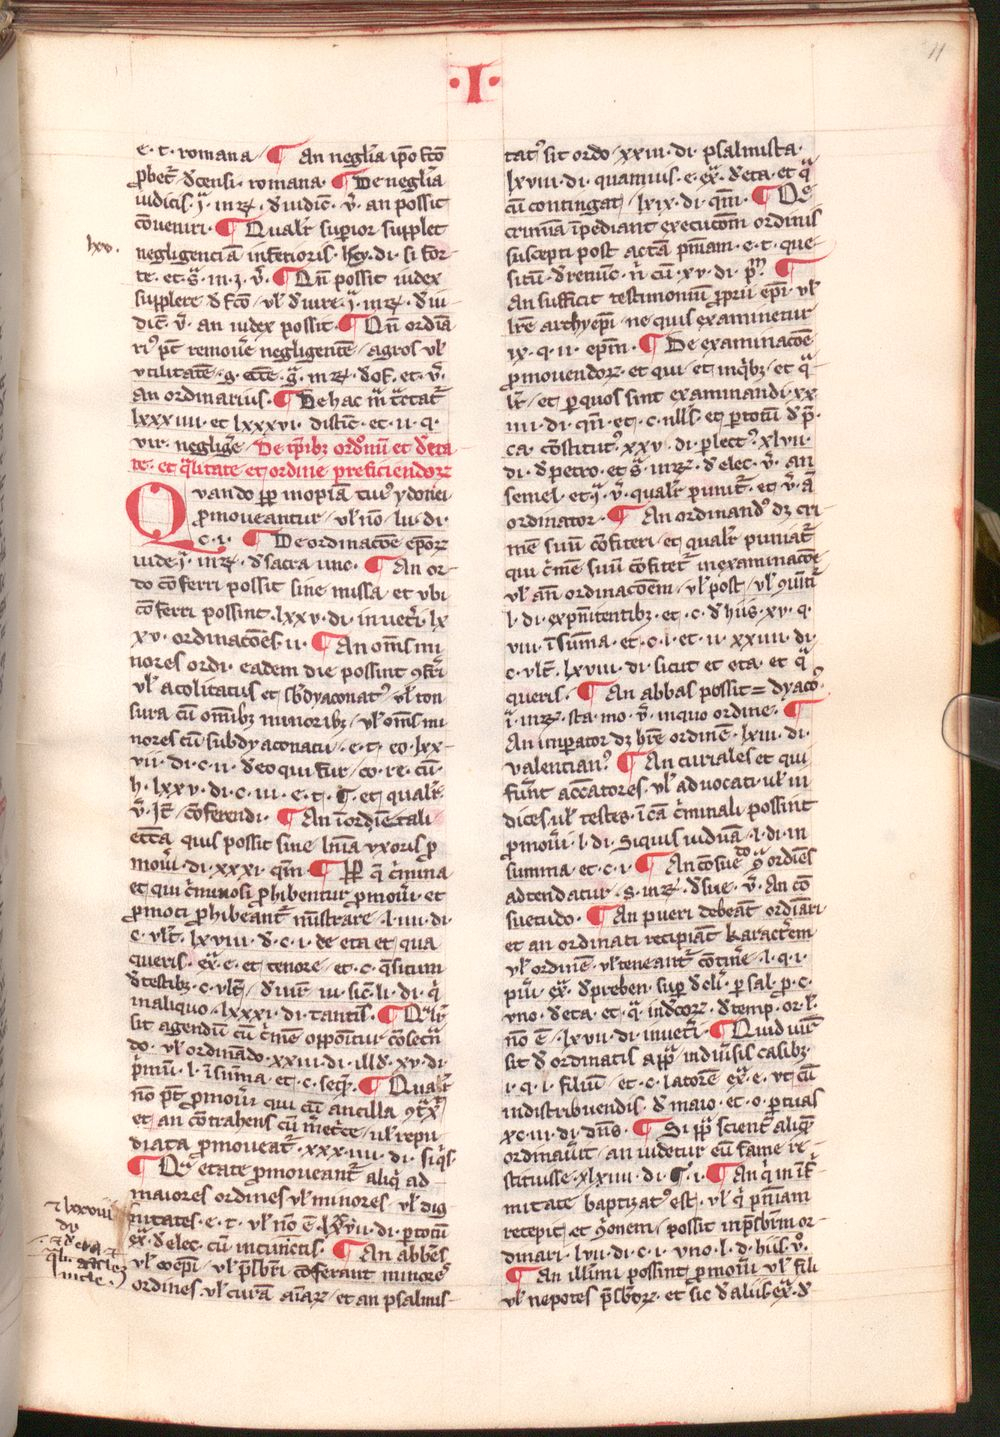 11
·I·
e· t· romana ¶ An neglīa ip̄o fc̄o
ꝓbet᷑ dc̄ensi· romana· ¶ De neglīa
iudicis· j· in ꝶ· d iudic̄· v̄· an possit
ꝯueniri· ¶ Qualr̄ suꝑior supplet
hxv·
negligenciā inferioris· hey· di· si for-
te· et s̄· in· z· v̄· ¶ Qn̄ possit iudex
supplere d fc̄o vl̓ d iure· j· in ꝶ· d iu
dic̄· v̄· an iudex possit· ¶ Qn̄ ordīa
ri᷒ pt̄ remoūe negligentē agros vl̓
vtilitatē· g· ecc̄e· q̄· in ꝶ· d of· et· v̄·
an ordinarius· ¶ De hac m̄ tc̄tat᷑
lxxxiiii· et lxxxvi· distīc̄· et· ii· q·
vii· neglig̓e De tp̄ibꝫ ordōnū et d eta
te· et q̄litate et ordine preficiendoꝝ
Quando ꝓp̄ inopiā cui᷒ ydonei
ꝓmoueantur vl̓ nō· lvi· di·
c· i· ¶ De ordinacōe ep̄oꝝ
uide j̄· in ꝶ· d sacra unc· ¶ An or-
do cōferri possit sine missa et vbi
cōferri possint· lxxv· di· in vet̓i· lx
xv· ordinacōes· ii· ¶ An om̄s mi
nores ordi· eadem die possint ꝯfr̄i
vl̓ acolitatus et sb̄dyaconat᷒ vl̓ ton
sura cū om̄ibꝫ minoribꝫ vl̓ om̄s mi
nores cū subdyaconatu· e· t· eo lxx-
vii· di· c· ii· d eo qui fur̄· co· re· cū·
h· lxxv· di· c· iii· e· t· ¶· et qualr̄·
v̄· It̄ cōferendi· ¶ An ī ordīe tali
ecc̄a quis possit sine lnīa vxoris ꝓ
moūi· di· xxxi· qm̄· ¶ Ꝓp̄ q̄ c̓mina
et qui c̓minosi ꝓhibentur ꝓmoūi· et
ꝓmoti ꝓhibeant᷑ mīstrare· l· iiii· di·
c· vlt̄· lxviii· d· c· i· de eta et qua
queris· ex̄· c· et tenore et· c· q̄situm
d testibꝫ· c· vlt̄ d iur̄· iii· sic̄· li· di· q̓
in aliquo· lxxxi· di· tantis· ¶ Qlr̄
sit agendū cū c̓mē opponitur cōsecn̄
do· vl̓ ordinādo· xxiii· di· ill̄d· xv· di·
p̓mū· l· ī sūma· et· c· seq̓· ¶ Qualr̄
nō pt̄ ꝓmoūi qui cū ancilla ꝯtx̄
et an cōtrahens cū m̓etͨce vl̓ repu
diata ꝓmoueat᷑· xxxiiii· di· siq̓s·
¶ Q̄ etate ꝓmoueant᷑ aliq̓ ad-
maiores ordines vl̓ minores vl̓ dig
nitates· e· t· vl̓ nō ē lxxvii· di· ꝑ totū
ex̄· d elec· cū in cunctis· ¶ An abb̄es
vl̓ coep̄i vl̓ p̄sb̄ri cōferant minores
ordines vl̓ curā aīaꝝ et an psalmis-
⁊ lxxxviii
di·
⁊ d eta ⁊
tat᷒ sit ordo xxiii· di· psalmista·
lxviii· di· quamuis· e· ex̄· d eta· et q̄
cū contingat lxix· di· qm̄· ¶ Q̄
crimīa īpediant execucōm ordinis
suscepti post actā pn̄iam· e· t· que-
situ· d renūc· n̄ cū· xv· di· p̓m̄· ¶
An sufficit testimoniū ꝓpriū ep̄i vl̓
lr̄e archyep̄i ne quis examinetur
ix· q· ii· ep̄m· ¶ De examinacōe
ꝓmouendoꝝ et qui et in q̓bꝫ et q̄
lr̄ et ꝑ quos sint examinandi· xx
iiii· di· qn̄· et· c· nll̄s· et ꝑ totū d p̄·
ca· cōstitut᷒· xxv· di· ꝑlect᷒· xlvii·
di· d petro· et s̄· in ꝶ· d elec· v̄· an
semel· et j̄· v̄· qualr̄ punit᷑· et v̄ ā
ordinator· ¶ An ordinand᷒ dꝫ cri-
mē suū cōfiteri et qualr̄ puniat᷑
qui c̓mē suū cōfitet᷑ in examinacōe
vl̓ an̄ ordinacōem vl̓ post vl̓
l· di· ex pn̄itentibꝫ· et· c· d hiis· xv· q·
viii· ī sūma· et· c· i· et· ii· xxiiii· di·
c· vlt̄· lxviii· di· sicut et eta· et q̄
queris· ¶ An abbas possit = dyaco᷒
ī· in ꝶ· sta· mo· v̄· in quo ordine· ¶
An imꝑator dꝫ hr̄e ordinē· lxiii· di·
valentian᷒ ¶ An curiales et qui
fūnt accatores vl̓ aduocati vl̓ iu
dices vl̓ testes· ī cā c̓minali possint
ꝓmoūi· l· di· Siquis viduā· l· di· in
summa et· c· i· ¶ An cōsuetͦ q̄ ordīes
adtendatur· s· in ꝶ· d sue· v̄· An cō
suetudo· ¶ An pueri debeāt ordīari
et an ordinati recipiāt karactr̄em
vl̓ ordinē· vl̓ teneant᷑ cōtīe· l· q· i·
pīi· ex̄· d preben· suꝑ d cli᷑· ꝑ sal· ꝓ· c·
vno· d eta· et· q̄· ind̓coꝝ· d temp· or· l·
nō ē lxvii· di· in vet̓i· ¶ Quid iur̄
sit d ordinatis a pp̄ in diūsis casibꝫ·
i· q· i· filiū et· c· latorē ex̄· e· vt cū
in distribuendis· d maio· et· o· ꝑ tuas
xc· iii· di· dn̄s· ¶ Si pp̄ scient᷑ aliqͫ
ordinauit an videtur eū fame re-
stituisse· xlviii· di· ¶· i· ¶ An q̓ in īf-
mitate baptizat᷒ est· vl̓ q̓ pn̄iam
recepit et ꝯonem possit in p̄sb̄rm or-
dinari· lvii· di· c· i· vno· l· d· hiis v᷒·
¶ An illīmi possint ꝓmoūi vl̓ fili
vl̓ nepotes p̄sb̄roꝝ· et sic d aliis· ex̄· d